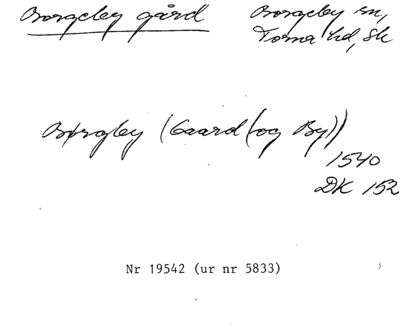 Borgeby gård
Borgeby sn,
Torna hd, Sk
Børgby (Gaard (og By))
1540
DK 152
Nr 19542 (ur nr 5833)